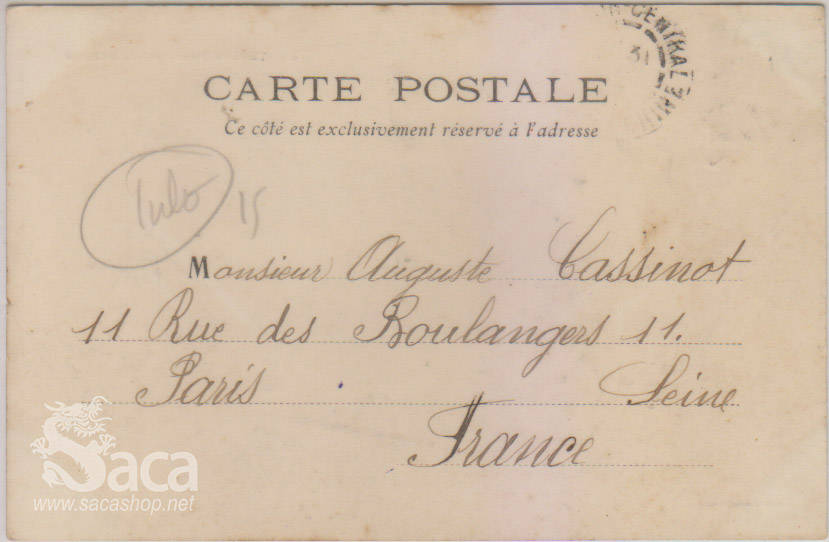 CENTRAL
31
CARTE POSTALE
Ce côté est exclusivement réservé à l'adresse
15
Monsieur Auguste Cassinot
11 Rue des Boulangers 11.
Paris Seine
France
Saca
www.sacashop.net